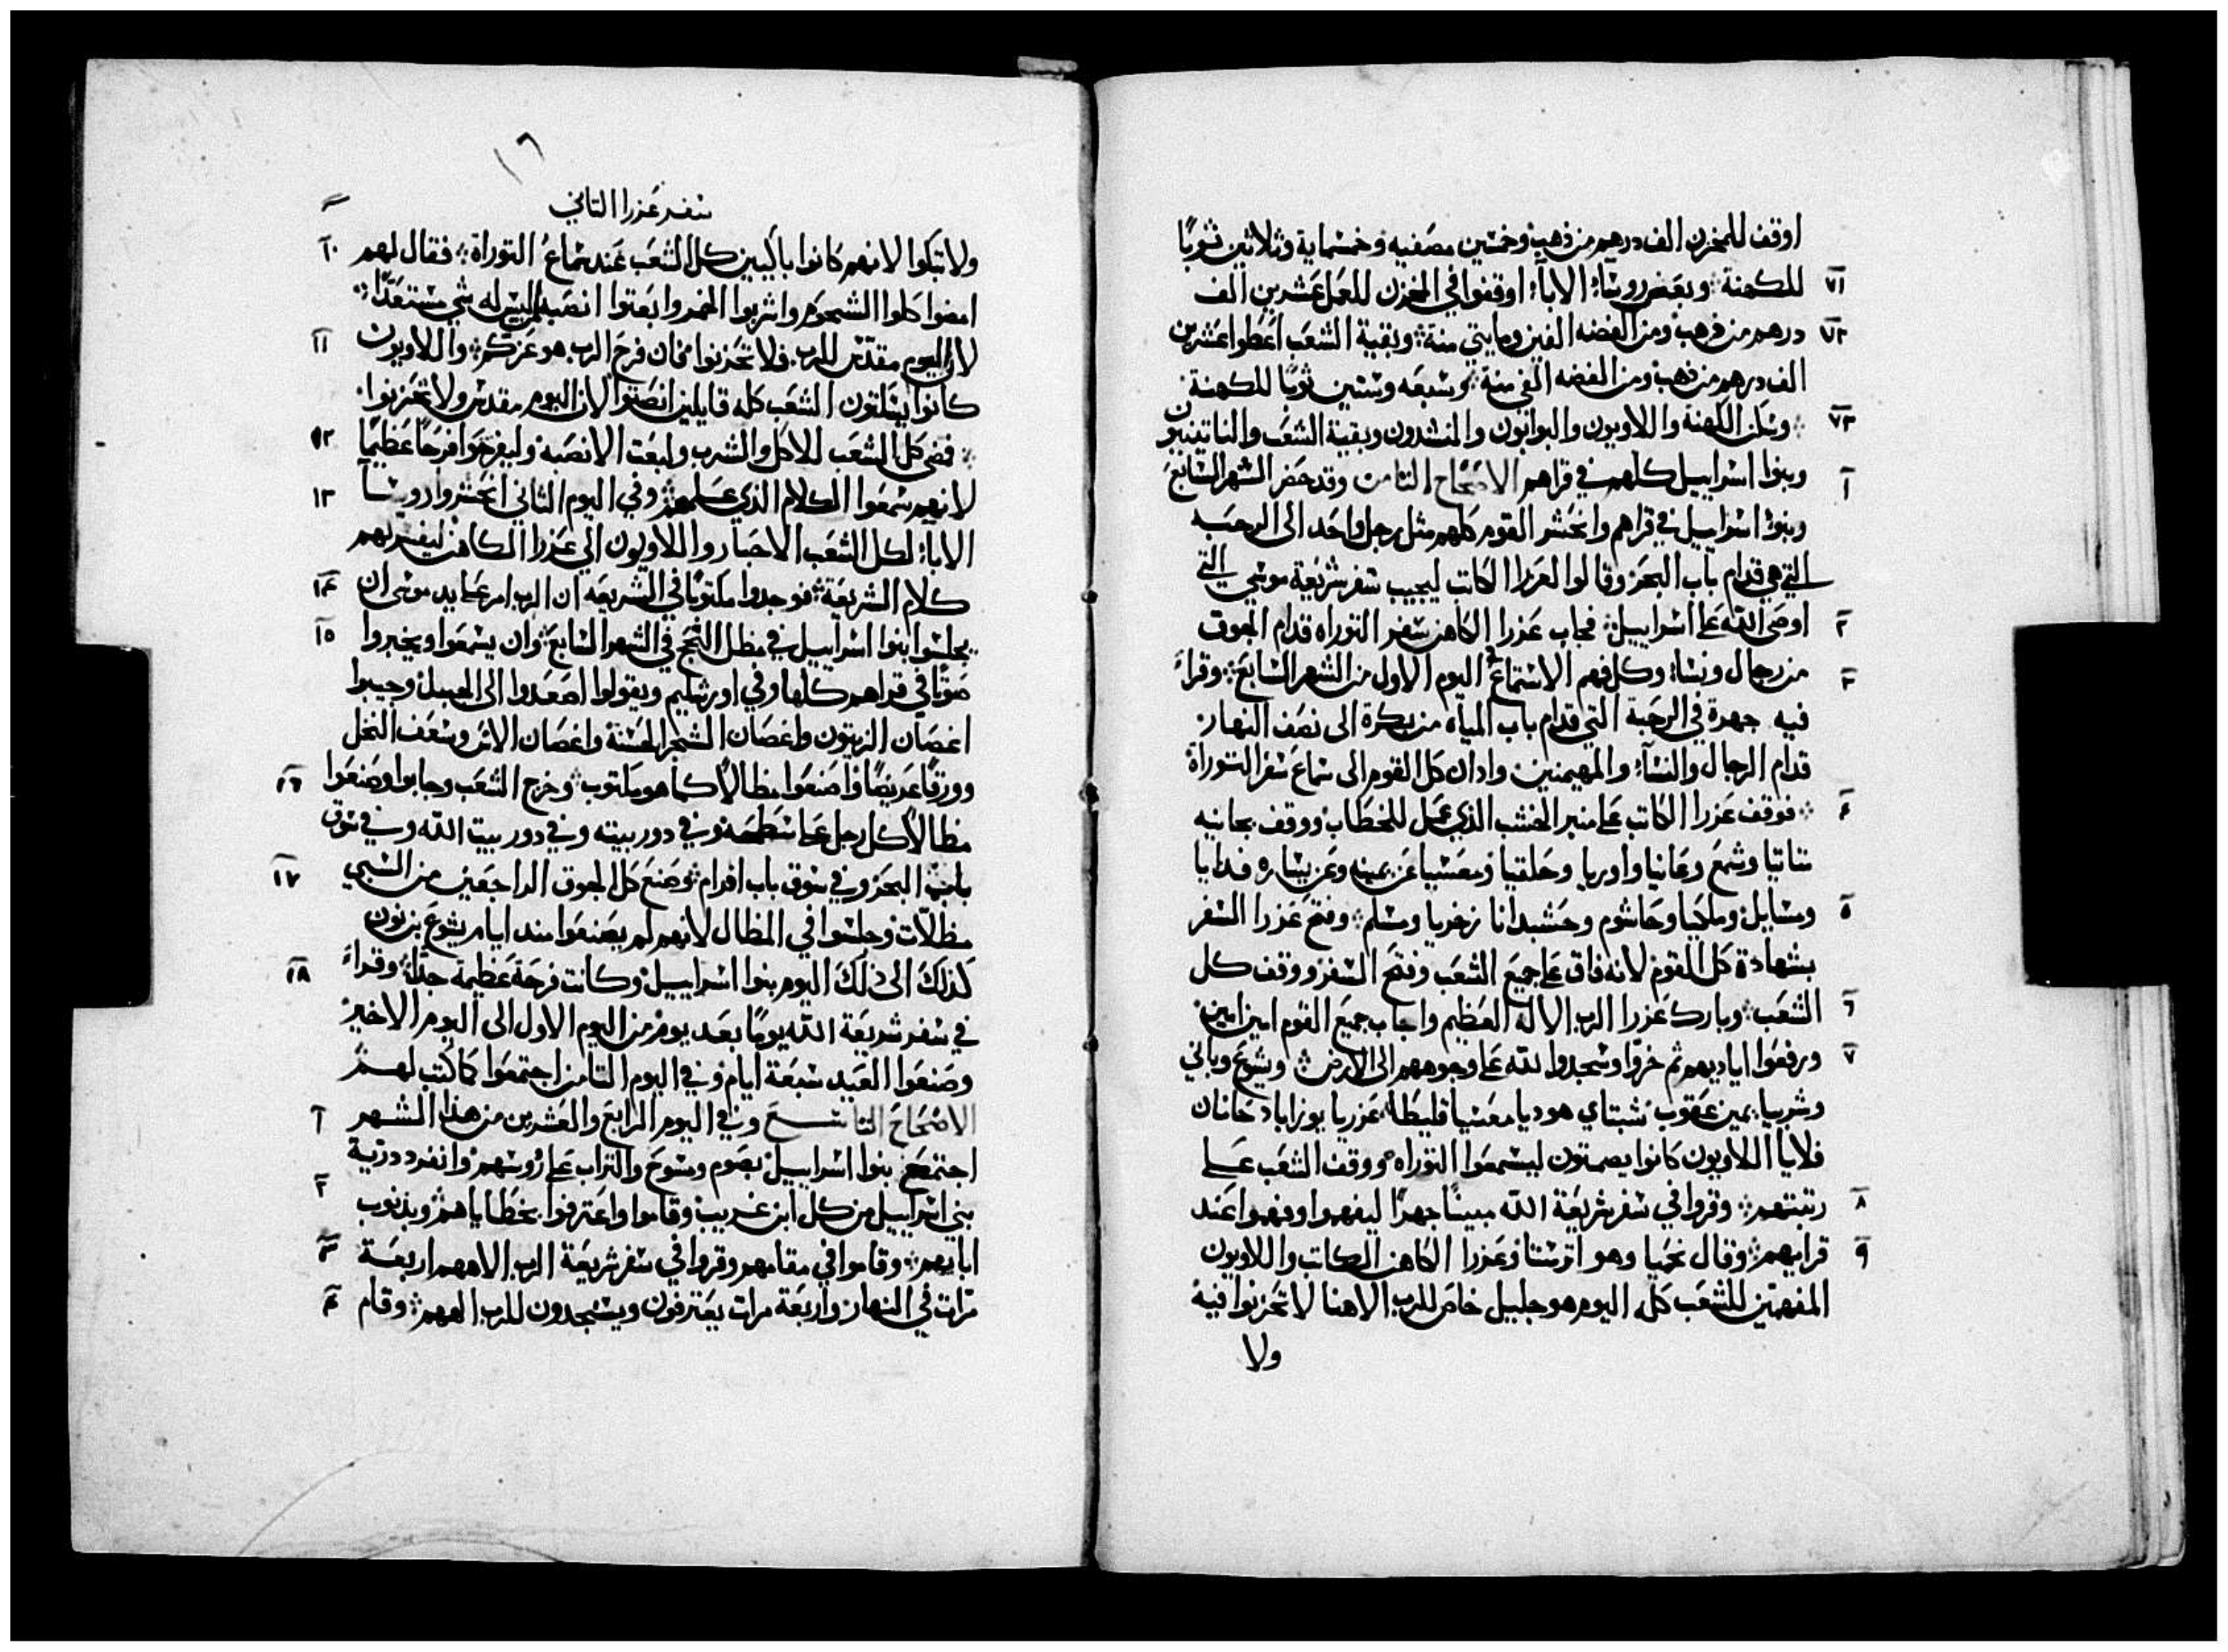 اوقف للمخزن الف درهم من ذهب وخمسين مصفيه وخمسماية وثلاثين ثوبًا
٧١ للكهنة ۞ وبعض روسَاء الاباء اوقفوا في المخزن للعمل عشرين الف
٧٢ درهم من ذهب ومن الفضه الفين ومايتي منة ۞ وبقية الشعب اعطوا عشرين
الف درهم من ذهب ومن الفضه الفي منة وسبعه وستين ثوبًا للكهنة
٧٣ ۞ وسَكن الكهنة واللاويون والبوابون والمنشدون وبقية الشعب والناتينيون
١ وبنوا اسراييل كلهم في قراهم الاصحاح الثامن وقد حضر الشهر السَابع
وبنوا اسراييل في قراهم وانحشر القوم كلهم مثل رجل واحد الى الرحبه
التي هي قدام باب البحر وقالوا لعزرا الكاتب ليجيب سفر شريعة موسي التي
٢ اوصى الله على اسراييل ۞ فجاب عزرا الكاهن سفر التوراه قدام الجوق
٣ من رجال ونسَاء وكل فهم الاستماع في اليوم الاول من الشهر السَابع ۞ وقراء
فيه جهرة في الرحبة التي قدام باب المياه من بكرة الى نصف النهار
قدام الرجال والنسآء والمهيمنين واذان كل القوم الى سماع سفر التوراة
٤ ۞ فوقف عزرا الكاتب على منبر الخشب الذي عمل للخطاب ووقف بجانبه
متاتيا وشمع وعانيا واوريا وحلقيا ومعسيا عن يمينه وعن يساره فدايا
٥ وميسايل وملكيا وحاشوم وحشبدانا زخريا ومسلم ۞ وفتح عزرا السفر
بشهادة كل القوم لانه فاق على جميع الشعب وفتح السفر ووقف كل
٦ الشعب ۞ وبارك عزرا الرب الاله العظيم واجاب جميع القوم امين امين
٧ ورفعوا اياديهم ثم خرّوا وسجدوا لله على وجوههم الى الارض ۞ ويشوع وباني
وشربيا يمين عقوب شبتاي هوديا معسيا قليطا عزريا يوزاباد حانان
فلايا اللاويون كانوا يصمتون ليسمعوا التوراه ووقف الشعب على
٨ رتبتهم ۞ وقروا في سفر شريعة الله مبينًا جهرًا ليفهموا وفهموا عند
٩ قرايهم ۞ وقال نحميا وهو اترستا وعزرا الكاهن الكاتب واللاويون
المفهمين للشعب كله اليوم هو جليل خاص للرب الاهنا لا تحزنوا فيه
ولا
١٦
سفر عزرا الثاني
ولا تبكوا لانهم كانوا باكيين كل الشعب عند سماع التوراة ۞ فقال لهم ١٠
امضوا كلوا الشحوم واشربوا الخمر وابعتوا انصبه لمن ليس له شي مستعدًا
لان اليوم مقدّس للرب فلا تحزنوا فان فرح الرب هو عزكم ۞ واللاويون ١١
كانوا يسَكتون الشعب كله قايلين انصتوا لان اليوم مقدس ولا تحزنوا
۞ فمضى كل الشعب للاكل والشرب ولبعت الانصبه وليفرحوا فرحًا عظيمًا ١٢
لانهم سمعوا الكلام الذي علمهم ۞ وفي اليوم الثاني انحشروا روسَآ ١٣
الاباء لكل الشعب الاحبار واللاويون الى عزرا الكاهن ليفسر لهم
كلام الشريعة ۞ فوجدوا مكتوبًا في الشريعه ان الرب امر على يد موسى ان ١٤
يجلسوا بنوا اسراييل في مظل الحج في الشهر السَابع ۞ وان يسمعوا ويخبروا ١٥
صوتًا في قراهم كلها وفي اورشليم ويقولوا اصعدوا الى الجبل وجيبوا
اغصان الزيتون واغصان الشجر الحسنة واغصان الاس وسعف النخل
وورقًا عريضًا واصنعوا مظالًا كما هو مكتوب ۞ وخرج الشعب وجابوا وصنعوا ١٦
مظالًا كل رجل على سَطحه وفي دور بيته وفي دور بيت الله وفي سوق
باب البحر وفي سوق باب افرام ۞ وصنع كل الجوق الراجعين من السَبي ١٧
مظلّات وجلسوا في المظال لانهم لم يصنعوا مند ايام يشوع بن نون
كذلك الى ذلك اليوم بنوا اسراييل وكانت فرحة عظيمة جدًا ۞ وقراء ١٨
في سفر شريعة الله يومًا بعد يوم من اليوم الاول الى اليوم الاخير
وصنعوا العيد سَبعة ايام وفي اليوم الثامن اجتمعوا كما كتب لهم
الاصحاح التاسع وفي اليوم الرابع والعشرين من هذا الشهر ١
اجتمع بنوا اسراييل بصوم ومسوح والتراب على رؤسهم ۞ وانفرد درية ٢
بني اسراييل من كل ابن غريب وقاموا واعترفوا بخطاياهم وبذنوب
ابايهم ۞ وقاموا في مقامهم وقروا في سفر شريعة الرب الاههم اربعة ٣
مرات في النهار واربعة مرات يعترفون ويسجدون للرب الههم ۞ وقام ٤